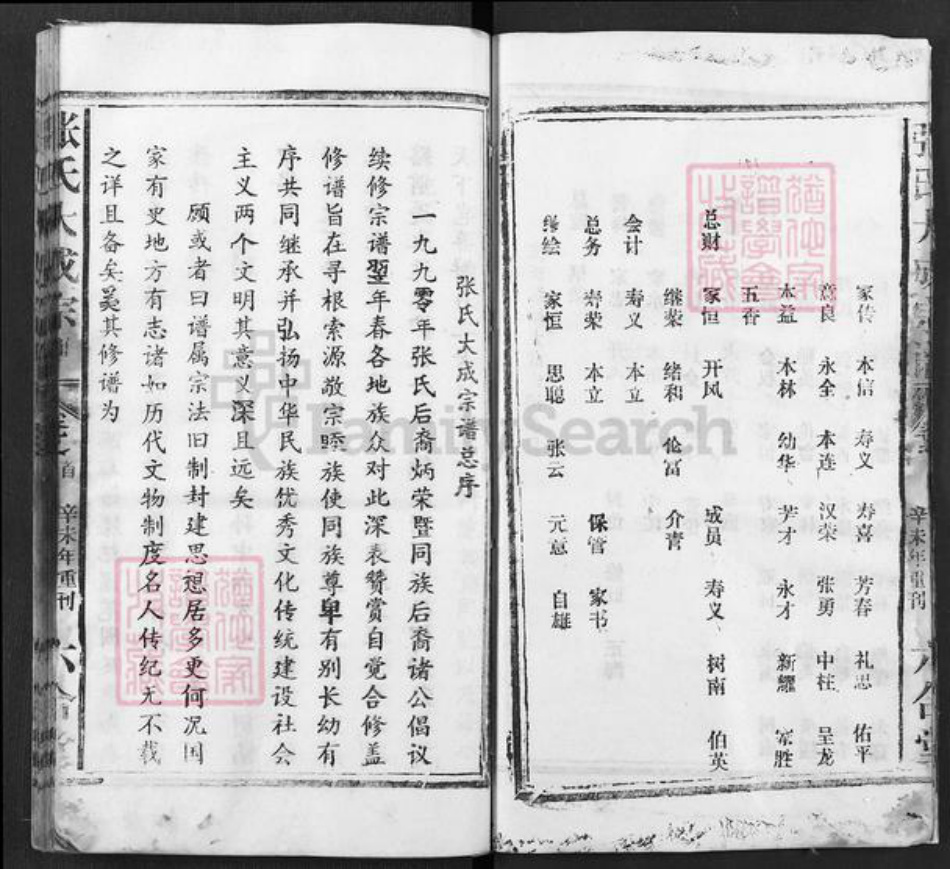 家传 本信 寿义 寿喜 芳春 礼思 佑平
意良 永全 本连 汉荣 张勇 中柱 呈龙
本益 本林 幼华 芳才 永才 新耀 家胜
五香
总财 家恒 开风 成员 寿义 树南 伯英
继荣 绪和 伦富 介清
会计 寿义 本立
总务 寿荣 本立 保管 家书
绘 家恒 思聪 张云 元意 自雄
六合堂
辛未年重刊
张氏大成宗谱总序
一九九零年张氏后裔炳荣暨同族后裔诸公倡议
续修宗谱翌年春各地族众对此深表赞赏自觉合修盖
修谱旨在寻根索源敬宗睦族使同族尊卑有别长幼有
序共同继承并弘扬中华民族优秀文化传统建设社会
主义两个文明其意义深且远矣
顾或者曰谱属宗法旧制封建思想居多更何况国
家有史地方有志诸如历代文物制度名人传纪无不载
之详且备矣奚其修谱为
张氏大成宗
卷之首
辛未年重刊
六合堂
FamilySearch